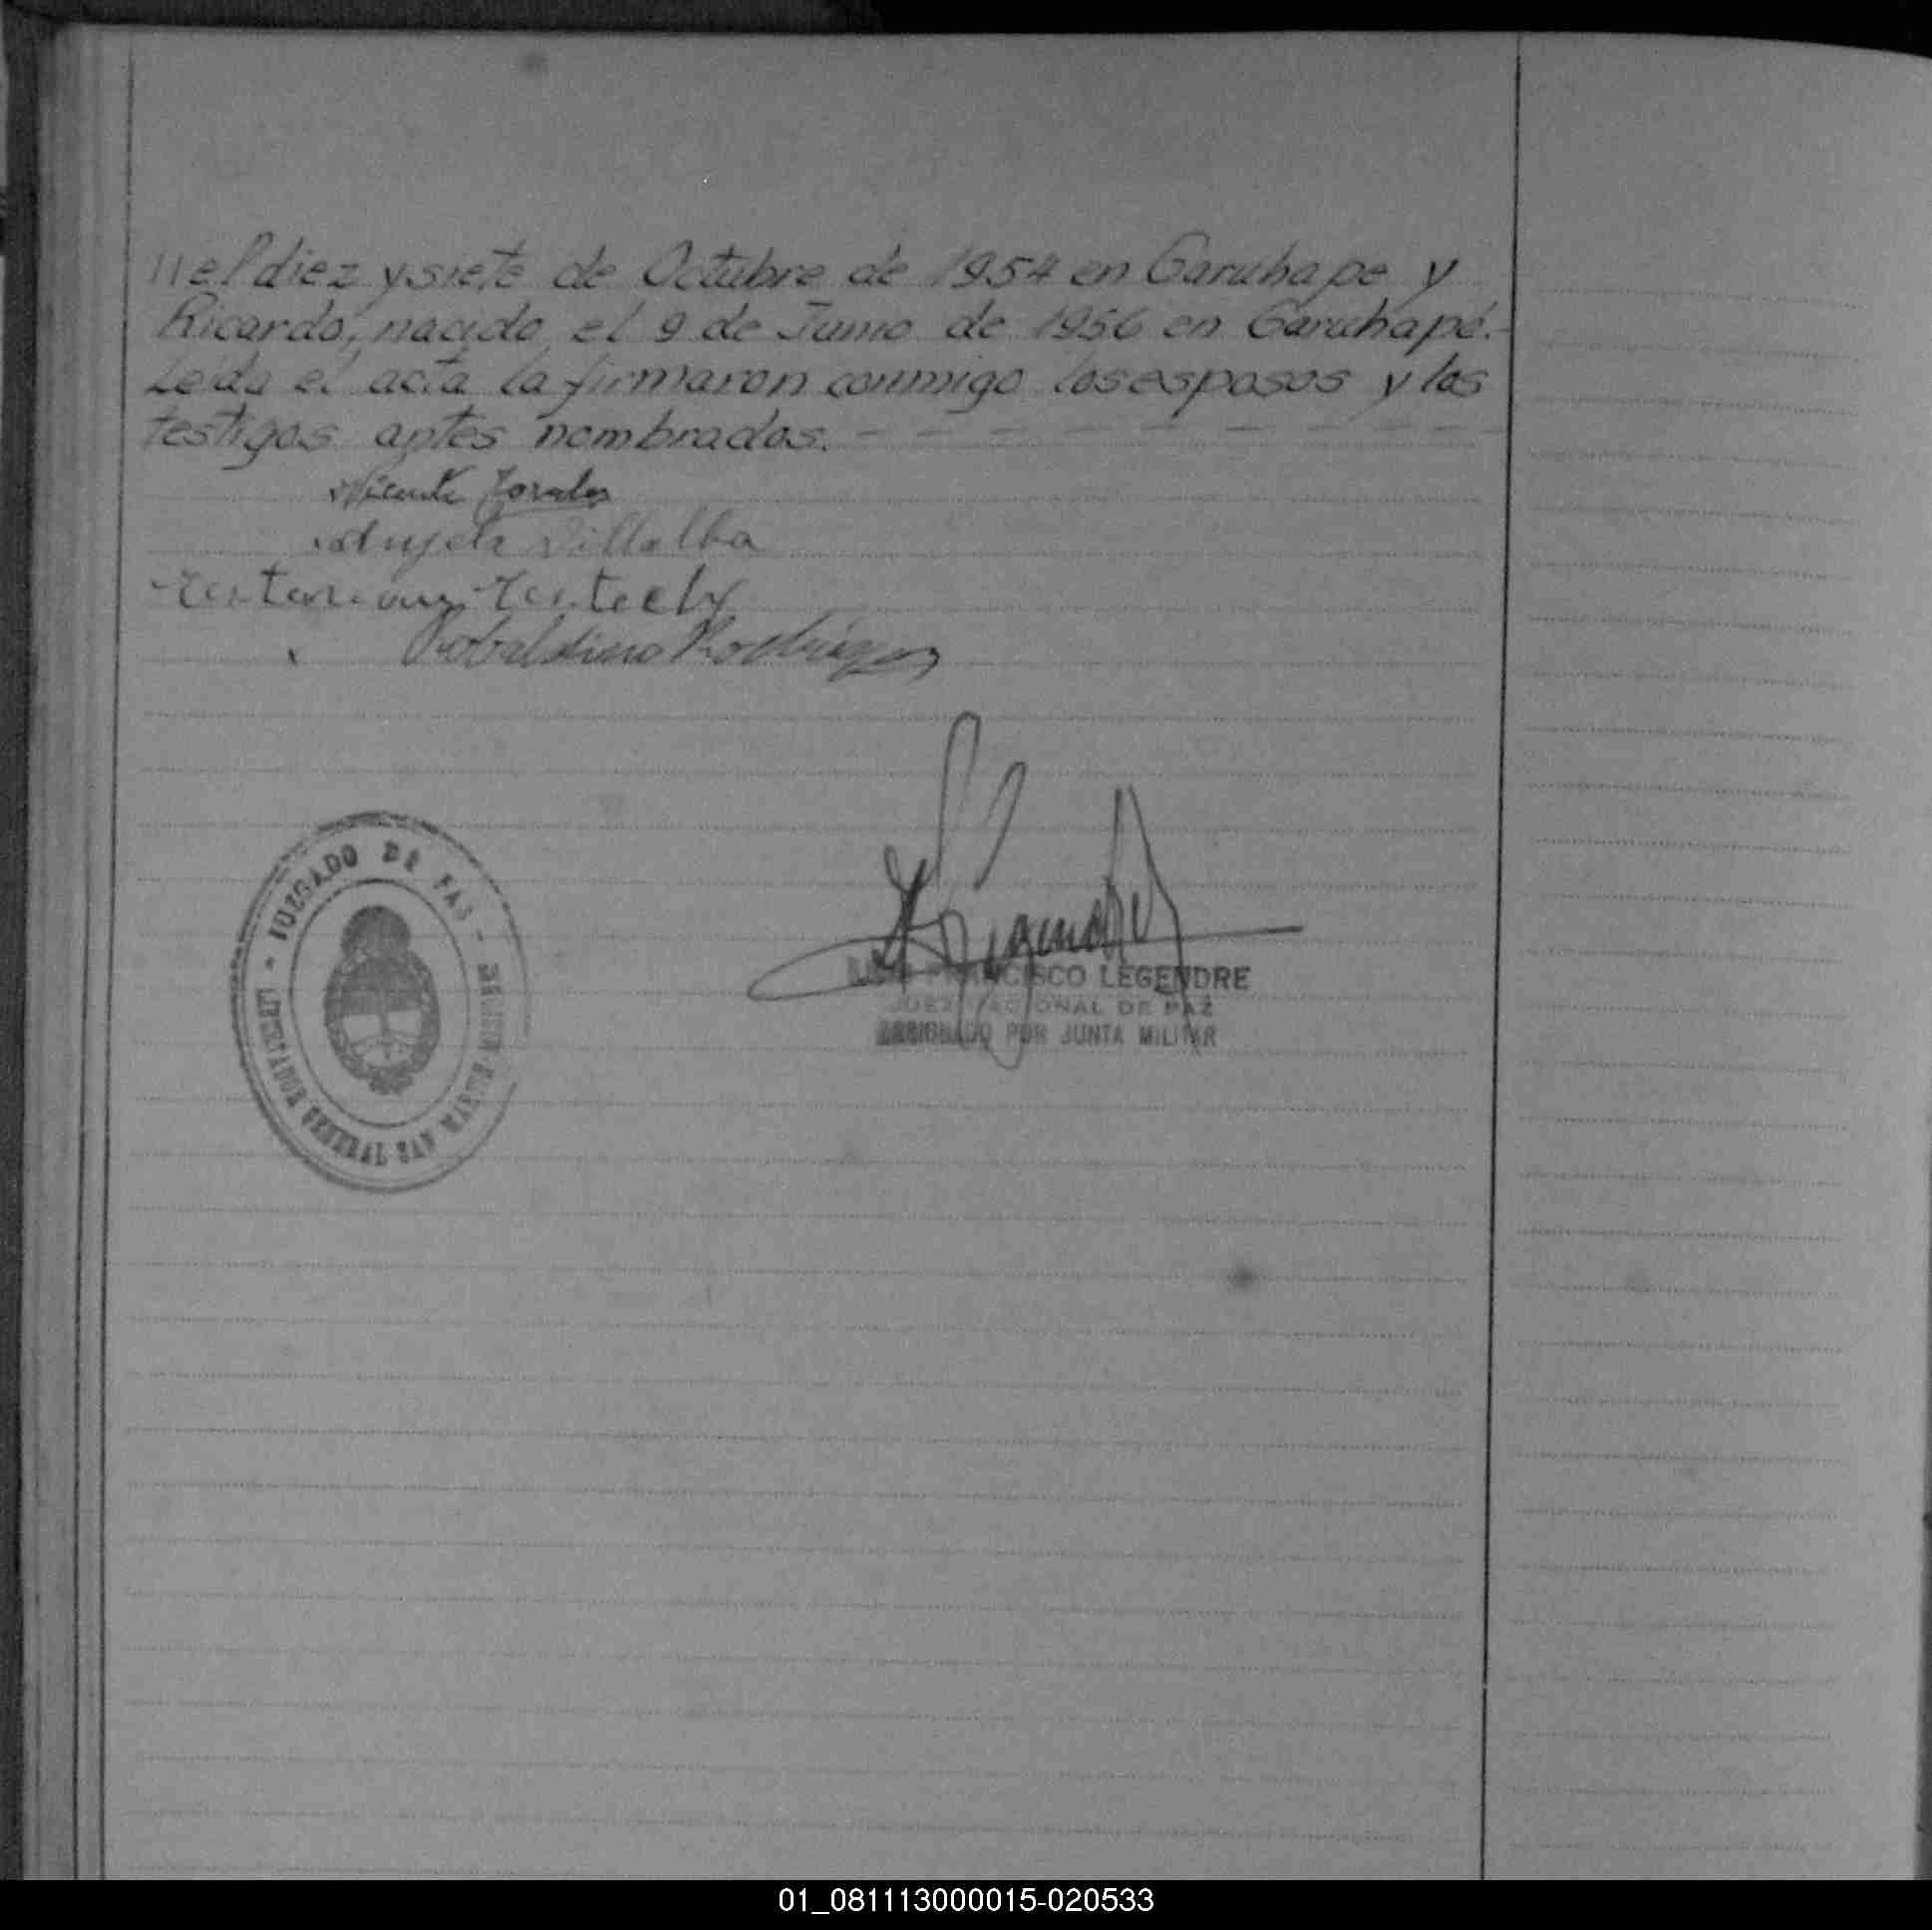 // el diez y siete de Octubre de 1954 en Garuhape y
Ricardo, nacido el 9 de Junio de 1956 en Garuhapé.-
Leida el acta la firmaron conmigo los esposos y los
testigos antes nombrados. - - - - - - - - -
Vicente
Villalba
Robaldino Rodriguez
JUZGADO DE PAZ - - LIBERTADOR GENERAL
FRANCISCO LEGENDRE
JUEZ NACIONAL DE PAZ
DESIGNADO POR JUNTA MILITAR
01_081113000015-020533